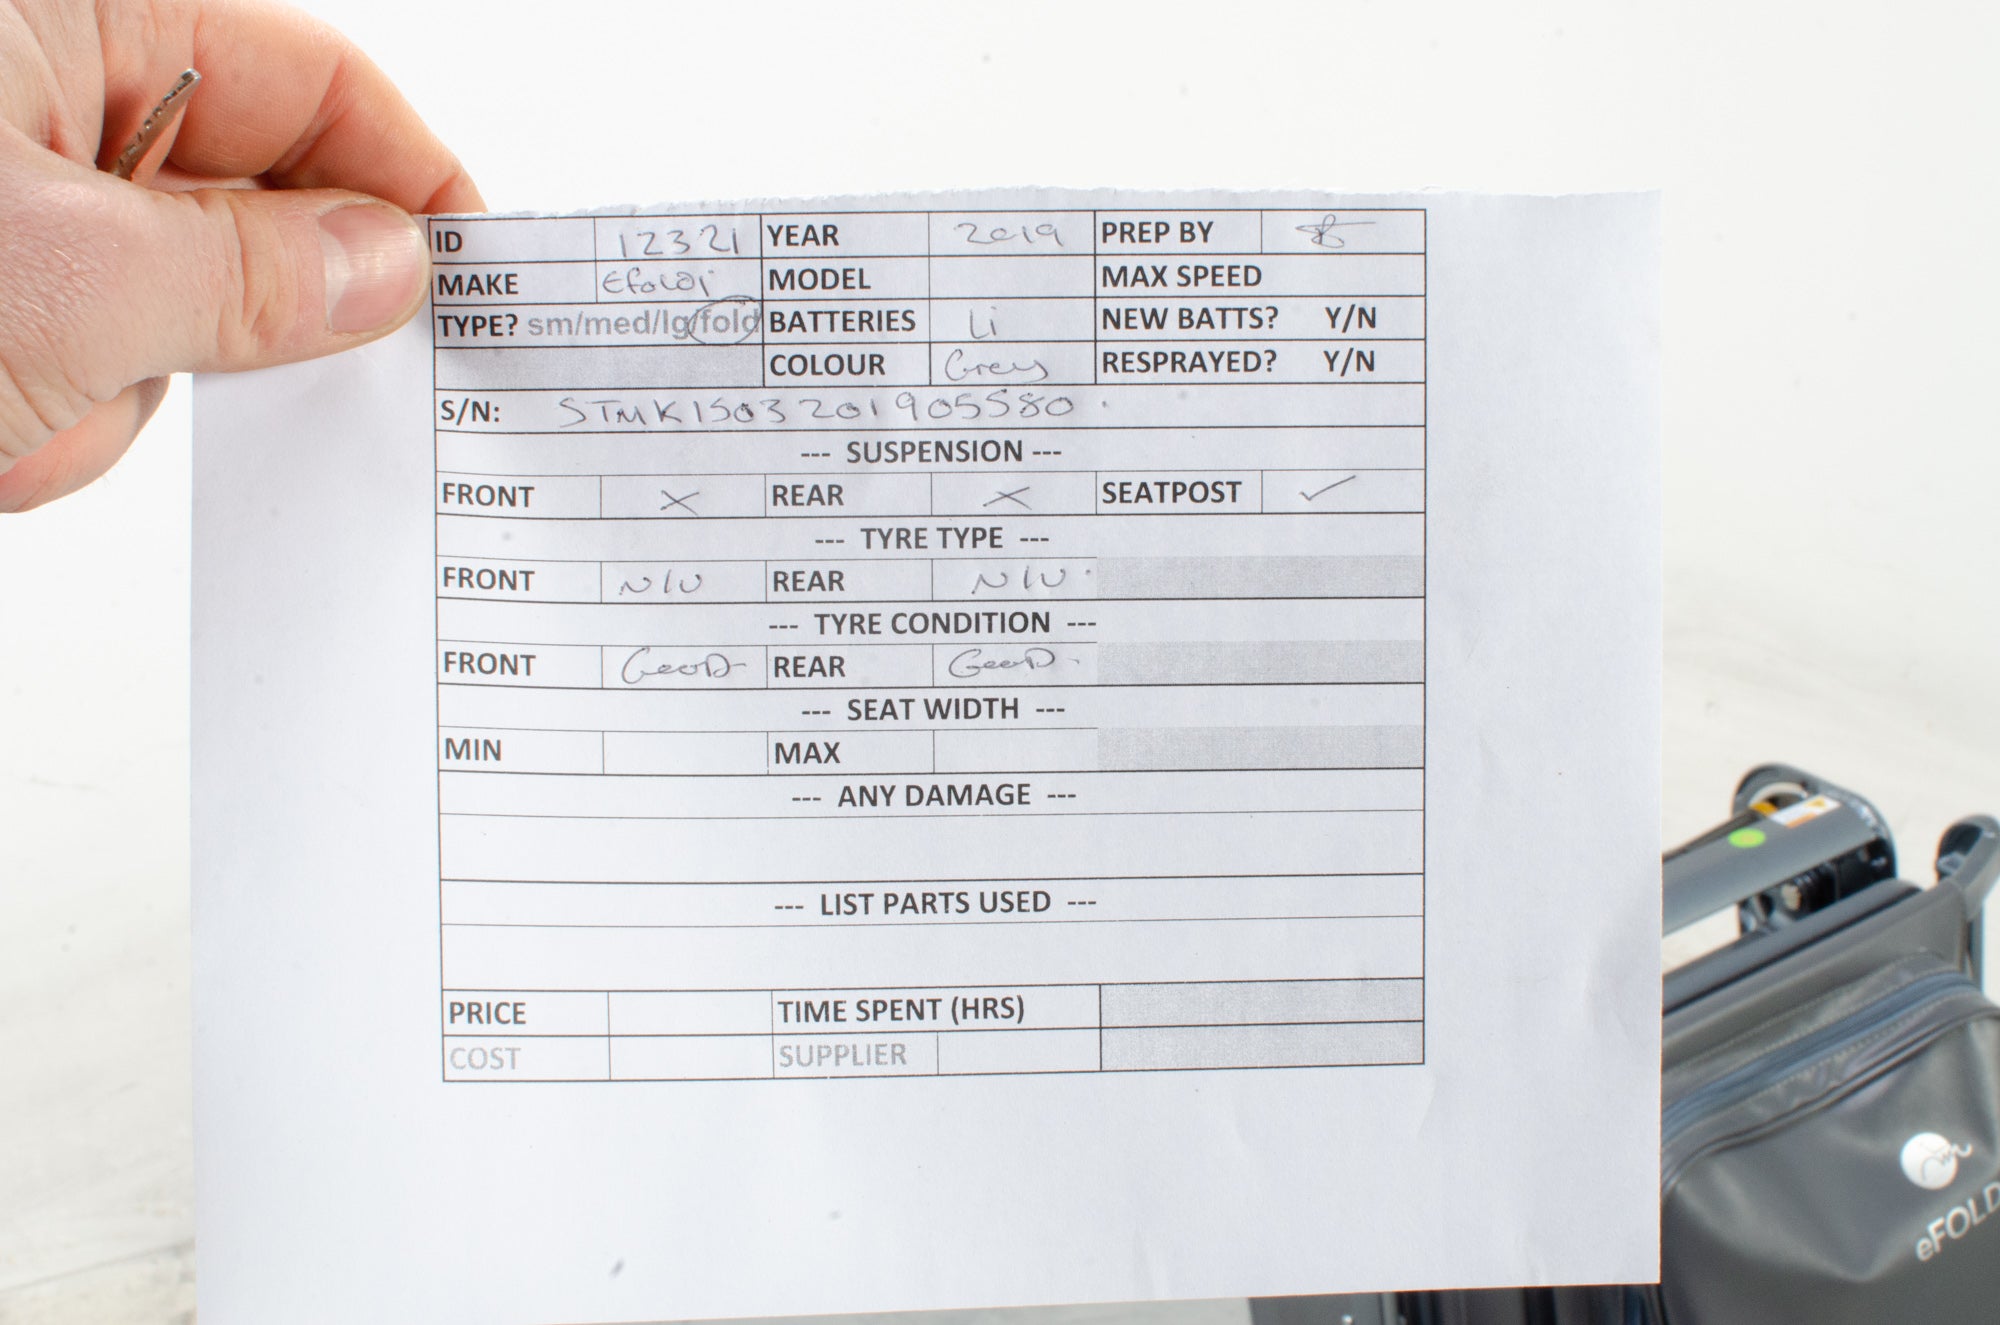 ID 12321 YEAR 2019 PREP BY
MAKE Efoldi MODEL MAX SPEED
TYPE? sm/med/lg/fold BATTERIES Li NEW BATTS? Y/N
COLOUR Grey RESPRAYED? Y/N
S/N: STMK1503201905580
--- SUSPENSION ---
FRONT X REAR X SEATPOST ✓
--- TYRE TYPE ---
FRONT REAR
--- TYRE CONDITION ---
FRONT GOOD REAR GOOD
--- SEAT WIDTH ---
MIN MAX
--- ANY DAMAGE ---
--- LIST PARTS USED ---
PRICE TIME SPENT (HRS)
COST SUPPLIER
eFOLD